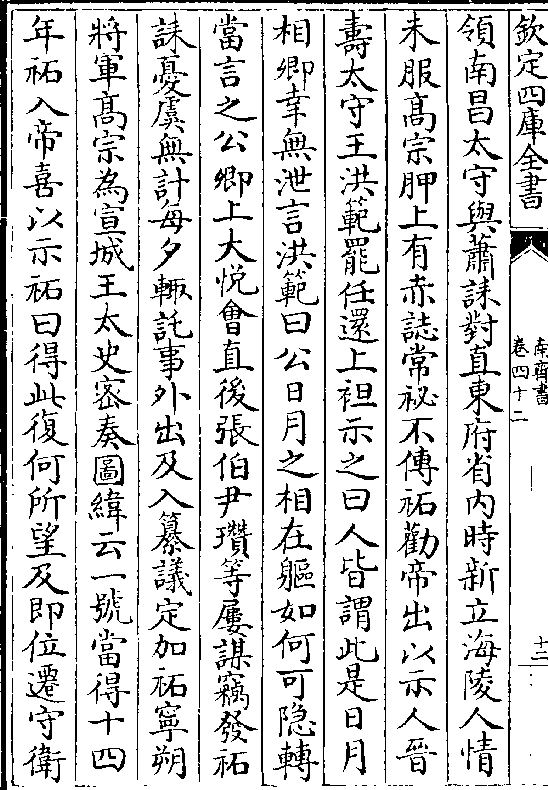 欽定四庫全書
南齊書
卷四十二
十三
領南昌太守與蕭誄對直東府省内時新立海陵人情
未服髙宗胛上有赤誌常祕不傳祏勸帝出以示人晉
壽太守王洪範罷任還上袒示之曰人皆謂此是日月
相卿幸無泄言洪範曰公日月之相在軀如何可隐轉
當言之公卿上大悦會直後張伯尹瓚等屢謀竊發祏
誄憂虞無計每夕輙託事外出及入纂議定加祏寧朔
將軍髙宗為宣城王太史宻奏圖緯云一號當得十四
年祏入帝喜以示祏曰得此復何所望及即位遷守衛